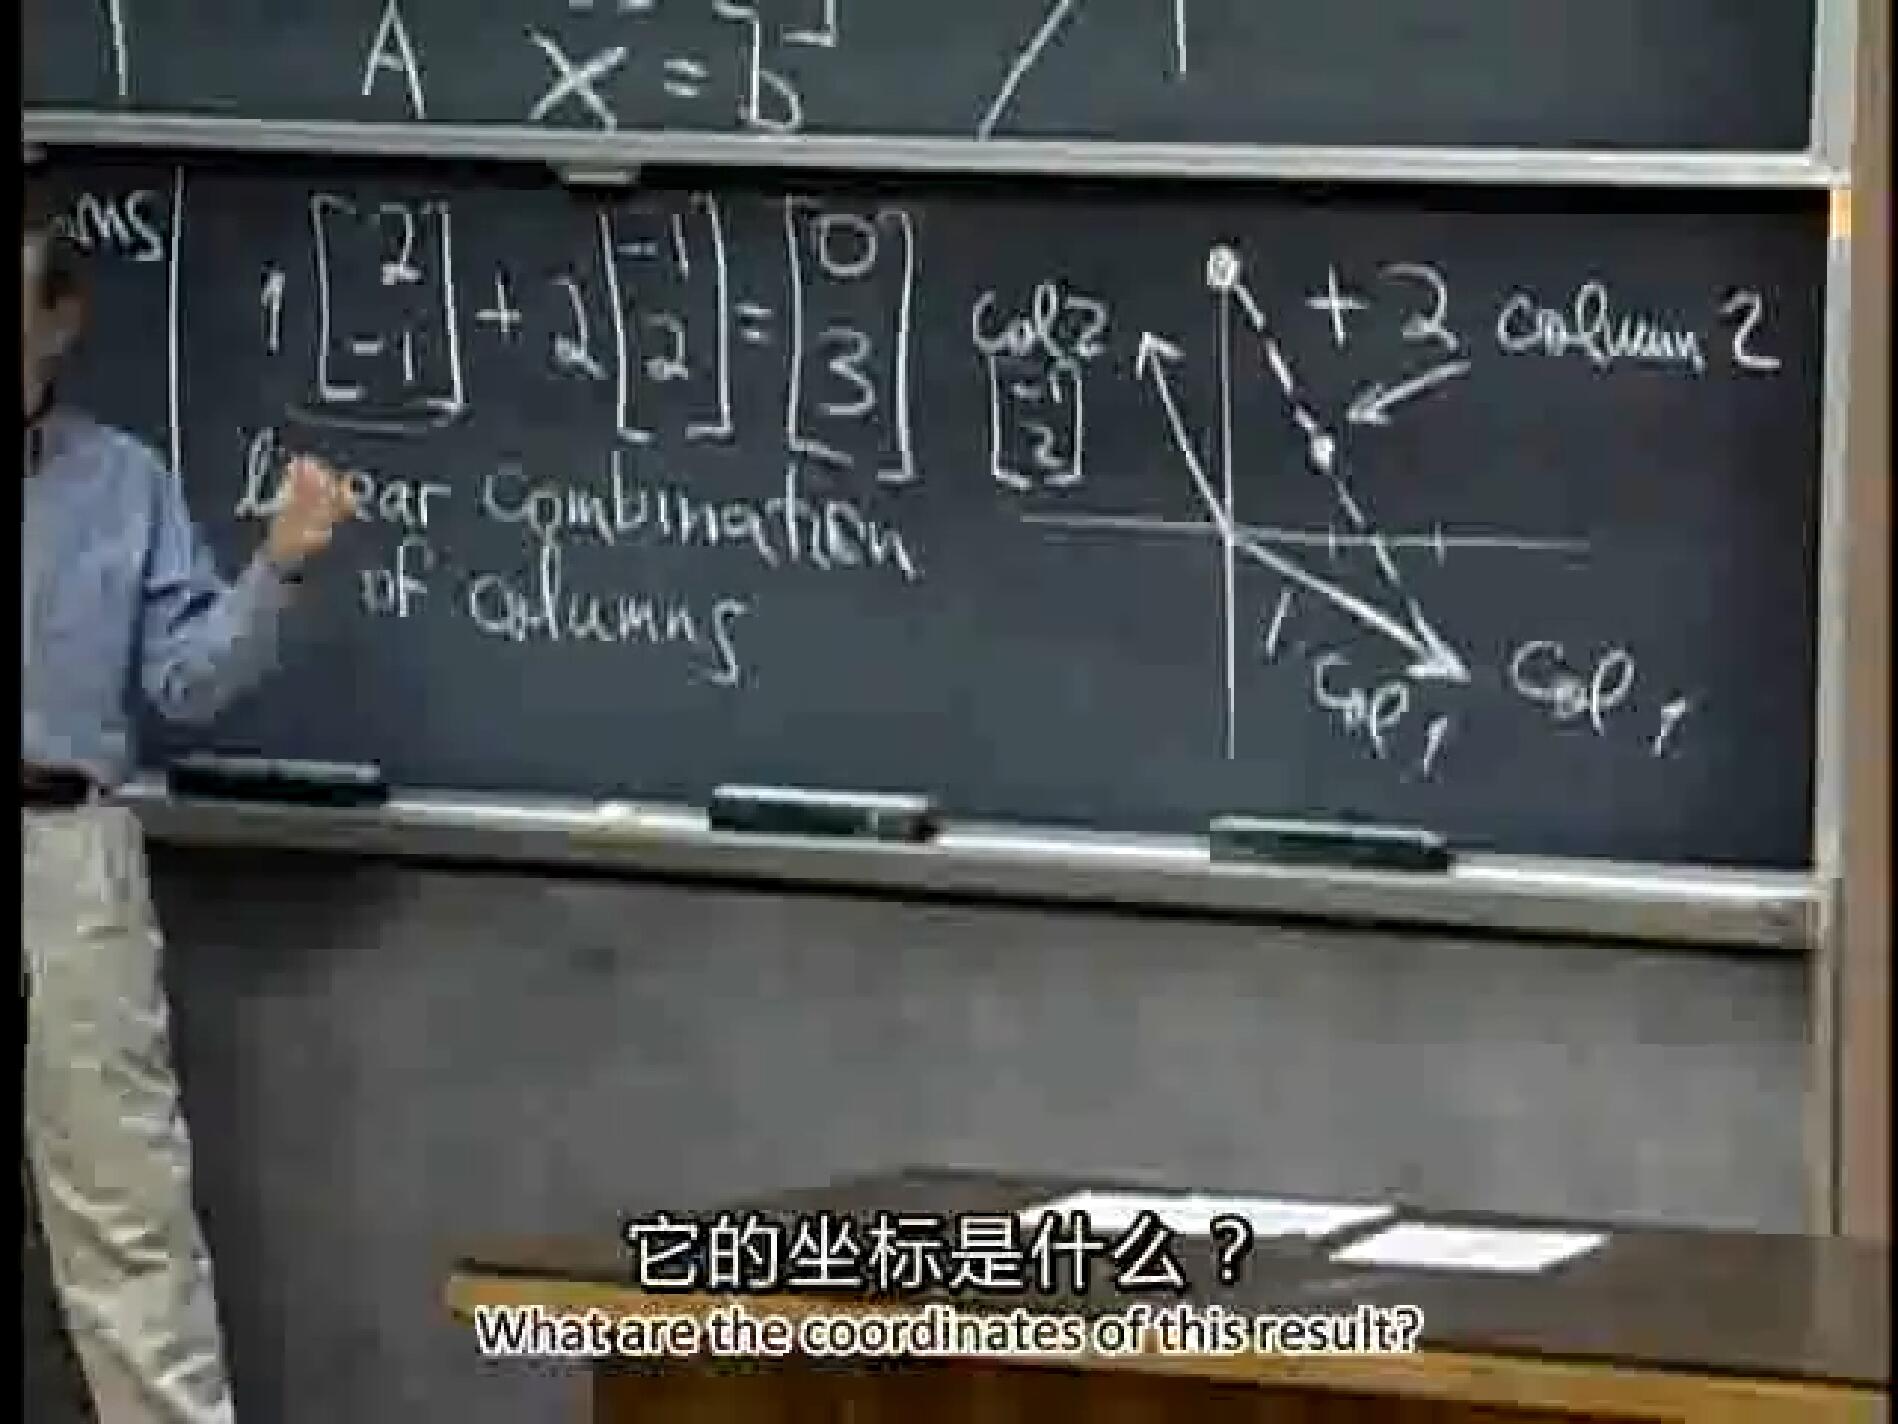 A x = b
ms
1 [2 -1] + 2 [-1 2] = [0 3]
linear combination
of columns
col 2
[-1 2]
+ 2 column 2
col 1
col 1
它的坐标是什么？
What are the coordinates of this result?